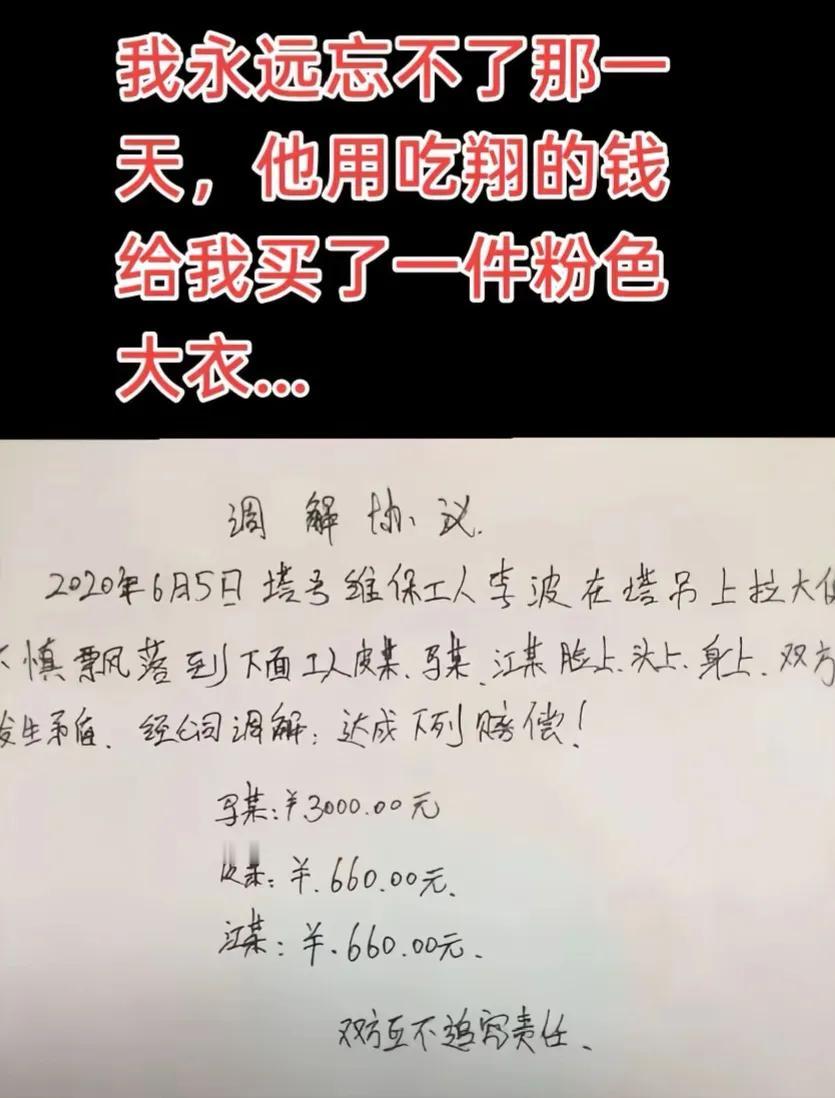 我永远忘不了那一
天，他用吃翔的钱
给我买了一件粉色
大衣...
调解协议.
2020年6月5日塔吊维保工人李波在塔吊上拉大便
不慎飘落到下面工人皮某、马某、江某脸上.头上.身上.双方
发生矛盾.经公司调解:达成下列赔偿!
马某:¥3000.00元
皮某:¥.660.00元.
江某:¥.660.00元.
双方互不追究责任、